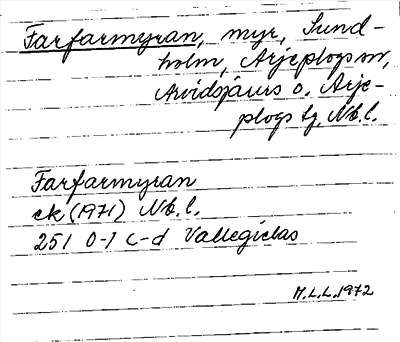 Farfarmyran, myr, Sund-
holm, Arjeplogs sn,
Arvidsjaurs o. Arje-
plogs tg, Nb. l.
Farfarmyran
ek (1971) Nb. l.
251 0-1 c-d Vallegielas
M.L.L. 1972